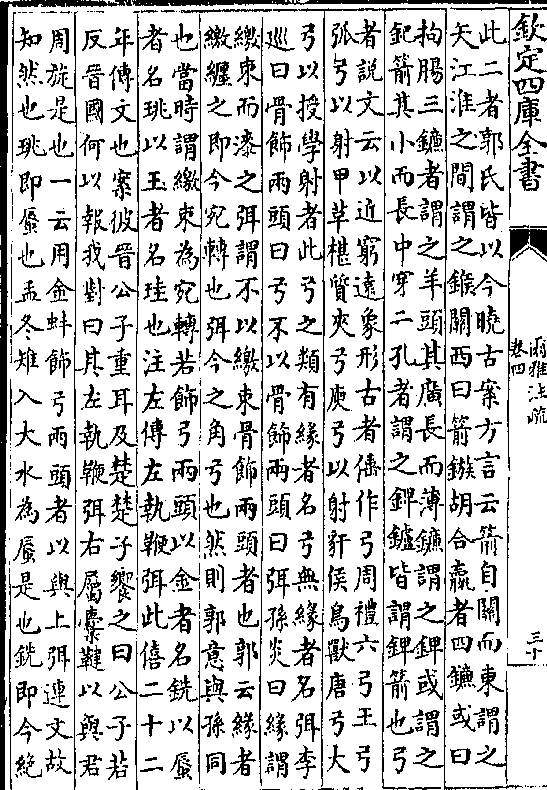 欽定四庫全書
爾雅注疏
卷四
三十
此二者郭氏皆以今曉古案方言云箭自關而東謂之
矢江淮之間謂之鍭關西曰箭鏃胡合嬴者四鐮或曰
拘腸三鐮者謂之羊頭其廣長而薄鐮謂之錍或謂之
鈀箭其小而長中穿二孔者謂之錍鑪皆謂錍箭也弓
者說文云以近窮遠象形古者倕作弓周禮六弓王弓
弧弓以射甲革椹質夾弓庾弓以射豻侯鳥獸唐弓大
弓以授學射者此弓之類有緣者名弓無緣者名弭李
巡曰骨飾兩頭曰弓不以骨飾兩頭曰弭孫炎曰緣謂
繳束而漆之弭謂不以繳束骨飾兩頭者也郭云緣者
繳纏之即今宛轉也弭今之角弓也然則郭意與孫同
也當時謂繳束為宛轉若飾弓兩頭以金者名銑以蜃
者名珧以玉者名珪也注左傳左執鞭弭此僖二十二
年傳文也案彼晉公子重耳及楚楚子饗之曰公子若
反晉國何以報我對曰其左執鞭弭右屬櫜鞬以與君
周旋是也一云用金蚌飾弓兩頭者以與上弭連文故
知然也珧即蜃也孟冬雉入大水為蜃是也銑即今絶